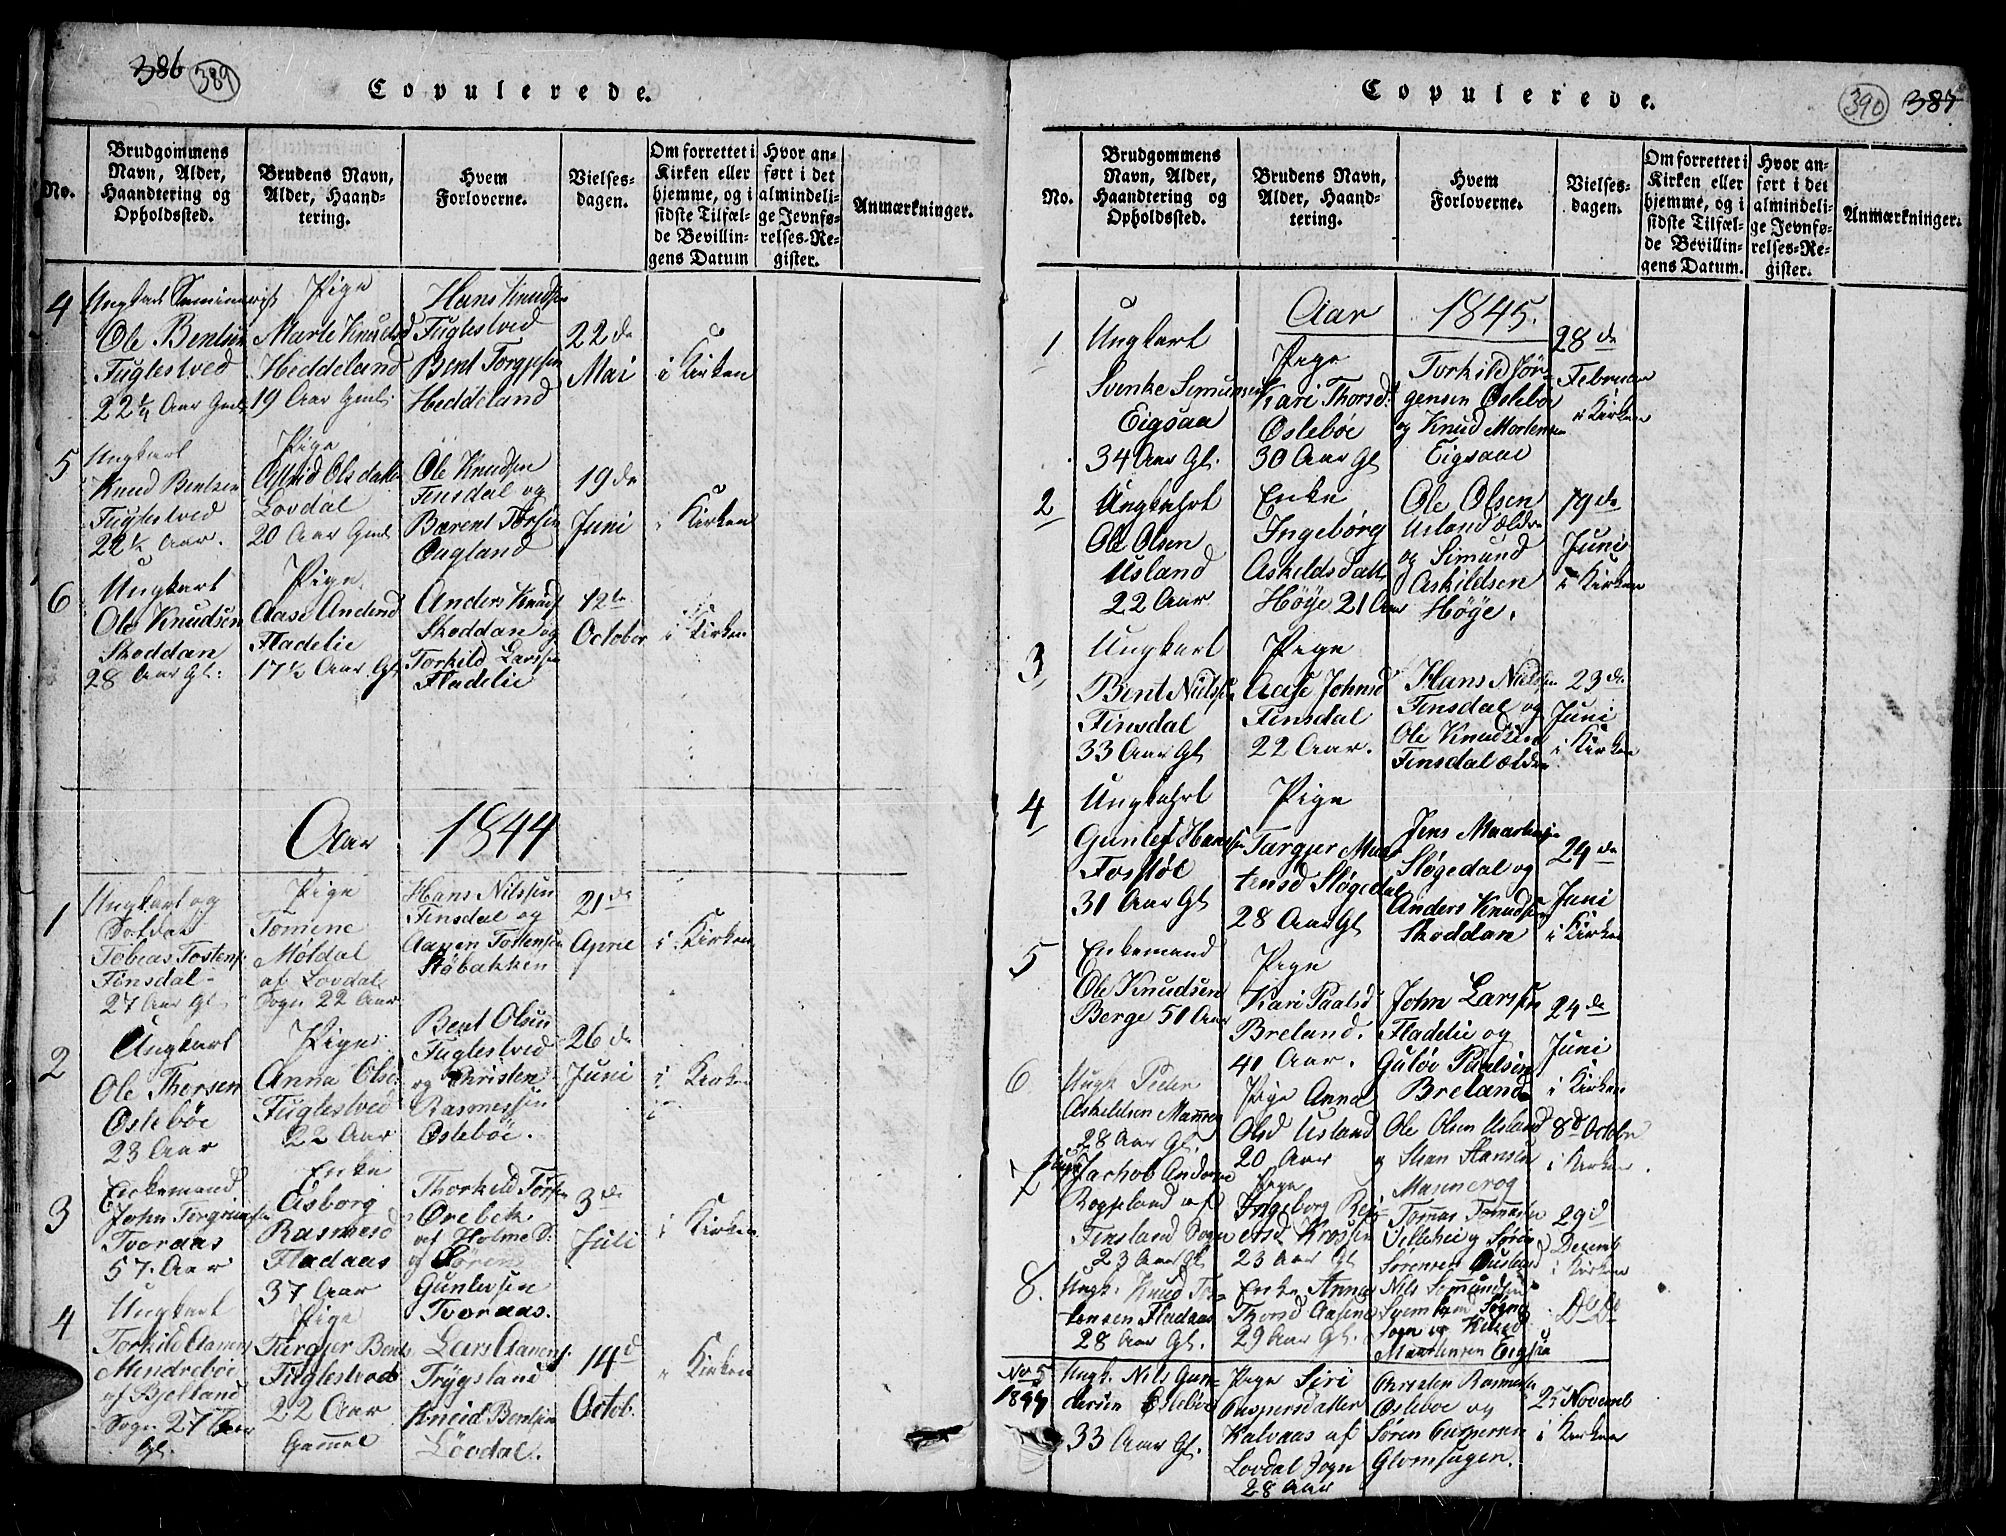 386 389
Copulerede.
No.
Brudgommens Navn, Alder, Haandtering og Opholdssted.
Brudens Navn, Alder, Haandtering.
Hvem Forloverne.
Vielsesdagen.
Om forrettet i Kirken eller hjemme, og i sidste Tilfælde Bevillingens Datum
Hvor anført i det almindelige Jevnførelses-Register.
Anmærkninger.
4
Ungkarl Seminarist
Ole Bentsen
Fuglestved
22 ¼ Aar Gml.
Pige
Marte Knudsd
Heddeland
19 Aar Gml.
Hans Knudsen
Fuglestved
Bent Torgjesen
Heddeland
22de
Mai
i Kirken
5
Ungkarl
Knud Bentsen
Fuglestved
22 ½ Aar.
Pige
Astrid Olsdatter
Lovdal
20 Aar Gml
Ole Knudsen
Finsdal og
Bærent Torsen
Øugland
19de
Juni
" Kirken
6
Ungkarl
Ole Knudsen
Skoddan
28 Aar Gl.
Pige
Aase Andersd
Fladelie
17 ½ Aar Gl.
Anders Knuds
Skoddan og
Torkild Larssen
Fladelie
12te
October
i Kirken
Aar 1844
1
Ungkarl og
Soldat
Tobias Tostens.
Finsdal
27 Aar Gl
Pige
Tomene
Møldal
af Lovdal
Sogn 22 Aar
Hans Nilssen
Finsdal og
Aanen Tostensen
Støbakken
21de
April
i Kirken
2
Ungkarl
Ole Thorsen
Oslebøe
23 Aar
Pige
Anna Olsd.
Fuglestved
22 Aar
Bent Olsen
Fuglestved
og Christen
Rasmussen
Oslebøe.
26de
Juni
i Kirken
3
Enkemand
John Torgrimsen
Tvoraas
57 Aar
Enke
Asborg
Rasmusd
Fladaas
37 Aar
Thorkild Torsen
Orebek
af Holme S:
og Søren
Guntersen
Tvoraas.
3de
Juli
i Kirken
4
Ungkarl
Torkild Aanens
Mendrebøe
af Bjelland
Sogn 27 Aar
Gl.
Pige
Targjer Bents
Fuglestved
22 Aar
Gammel
Lars Aanens
Trygsland
Kneid Bentsen
Løvdal.
14d
Octob.
" Kirken
Copulerede.
390 387
No.
Brudgommens Navn, Alder, Haandtering og Opholdssted.
Brudens Navn, Alder, Haandtering.
Hvem Forloverne.
Vielsesdagen.
Om forrettet i Kirken eller hjemme, og i sidste Tilfælde Bevillingens Datum.
Hvor anført i det almindelige Jevnførelses-Register.
Anmærkninger.
Aar 1845.
1
Ungkarl
Svenke Simunsen
Eigsaa
34 Aar Gl.
Pige
Kari Thorsd.
Oslebøe
30 Aar Gl
Torkild Jørgensen Oslebø
og Knud Mortensen
Eigsaae
28de
Februar
i Kirken
2
Ungkahrl
Ole Olsen
Usland
22 Aar
Enke
Ingebørg
Askildsdatt
Høye 21 Aar
Ole Olsen
Usland ældre
og Simund
Askildsen
Høye.
19de
Juni
i Kirken
3
Ungkarl
Bent Nielsen
Finsdal
33 Aar Gl
Pige
Aase Johnsd
Finsdal
22 Aar.
Hans Nielsen
Finsdal og
Ole Knudsen
Finsdal ældre
23de
Juni
i Kirken
4
Ungkahrl
Gunlef Hanssen
Fosstøl
31 Aar Gl
Pige
Targjer Maartensd Sløgedal
28 Aar Gl
Jens Maartensen
Sløgedal og
Anders Knudsen
Skoddan
24de
Juni
i Kirken
5
Enkemand
Ole Knudsen
Berge 50 Aar
Pige
Kari Paalsd
Breland.
41 Aar.
John Larssen
Fladelie og
Guløv Paalsen
Breland
24de
Juni
i Kirken
6
Ungk. Peder
Askildsen Manner
28 Aar Gl.
Pige Anna
Olsd Usland
20 Aar
Ole Olsen Usland
Hansen
Mannerog
8d Octobr
i Kirken.
7
Jachob Anders
Rogseland af
Finsland Sogn
23 Aar Gl.
Pige
Ingeborg
23 Aar Gl
Tomas Tomesen
og Søren
Sørensen
29d
Decemb
i Kirken
8.
Ungk. Knud Tostensen Fladaas
28 Aar Gl.
Enke Anna
Thorsd Aasene
29 Aar Gl.
Nils Semundsen
Søgne
Sogn og
Maartensen Eigsaa
Do Do
No 5
1844
Ungk. Nils Gundersen Oslebøe
33 Aar Gl.
Pige Siri
Caspersdatter
Kalvaas af
Lovdal Sogn
28 Aar
Christen Rasmusen
Oslebøe og
Søren Caspersen
Glomsagen.
25 Novemb
i Kirken